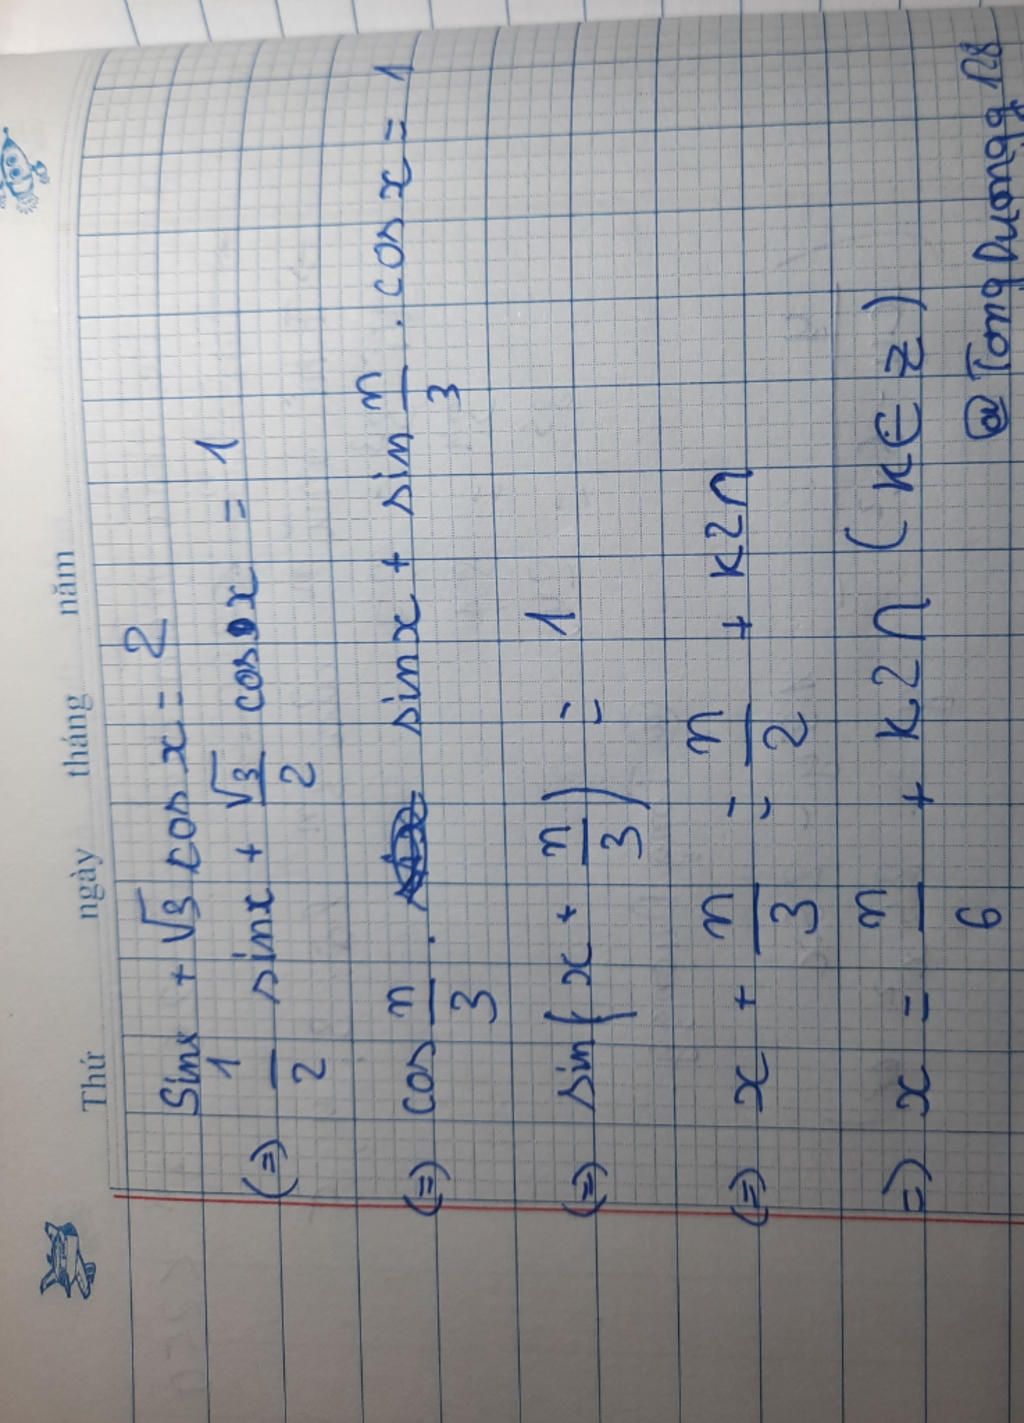 Thứ ngày tháng năm
Sinx + √3 cosx = 2
(=) 1/2 sinx + √3/2 cosx = 1
(=) cos π/3 . sinx + sin π/3 . cosx = 1
(=) sin(x + π/3) = 1
(=) x + π/3 = π/2 + k2π
=) x = π/6 + k2π (k∈Z)
@TongDuongg128